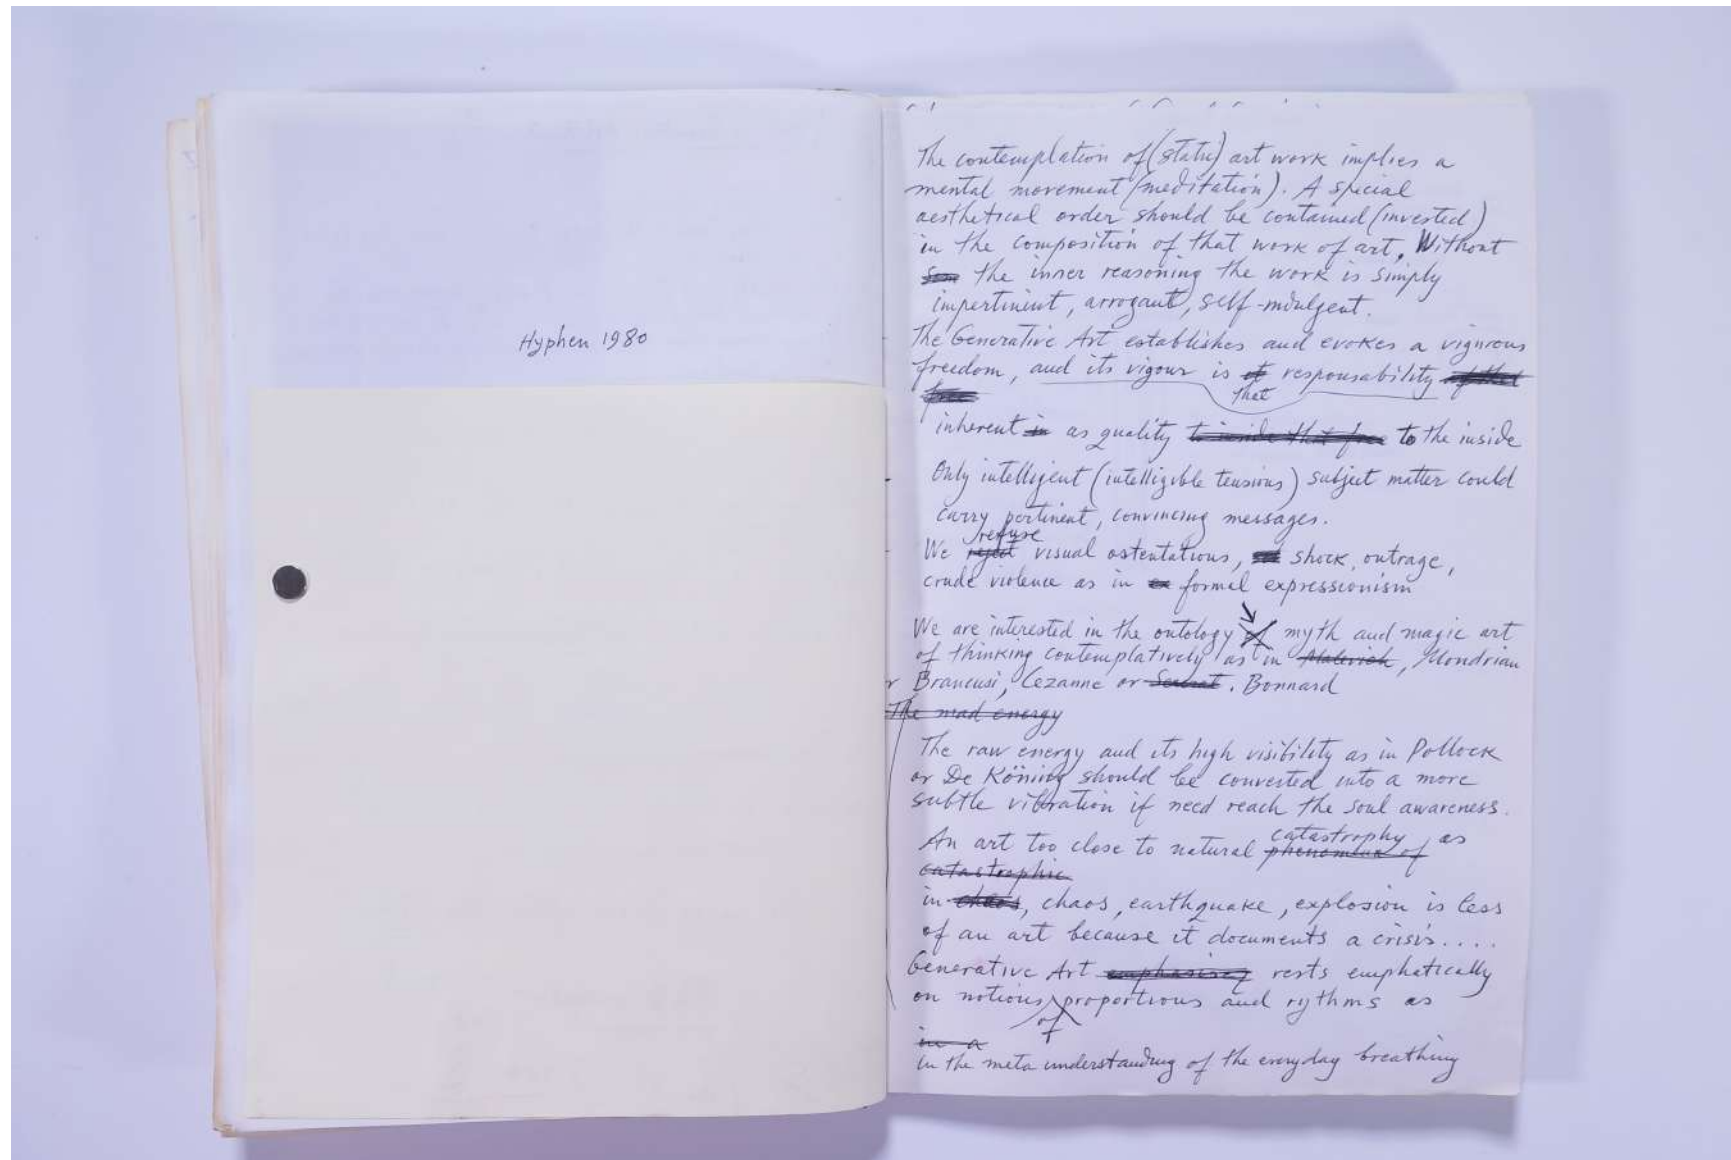 Hyphen 1980
The contemplation of (static) art work implies a
mental movement (meditation). A special
aesthetical order should be contained (invested)
in the composition of that work of art. Without
the inner reasoning the work is simply
impertinent, arrogant, self-indulgent.
The Generative Art establishes and evokes a vigurous
freedom, and its vigour is responsability
that
inherent as quality to the inside
Only intelligent (intelligible tensions) subject matter could
carry pertinent, convincing messages.
refuse
We reject visual ostentations, shock, outrage,
crude violence as in formal expressionism
We are interested in the ontology of myth and magic art
of thinking contemplatively as in Malevich, Mondrian
Brancusi, Cezanne or Seurat. Bonnard
The mad energy
The raw energy and its high visibility as in Pollock
or De Köning should be converted into a more
subtle vibration if need reach the soul awareness.
catastrophy
An art too close to natural phenomena of as
catastrophic
in chaos, chaos, earthquake, explosion is less
of an art because it documents a crisis....
Generative Art emphasising rests emphatically
on notions proportions and rythms as
of
in a
in the meta understanding of the everyday breathing